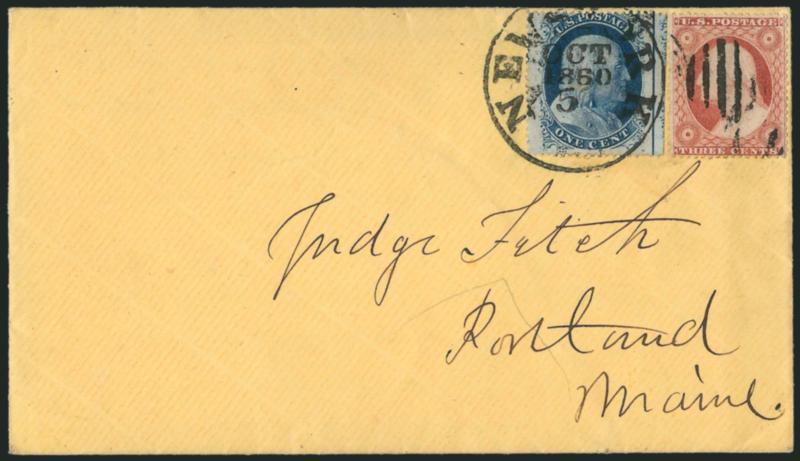 U.S. POSTAGE
ONE CENT
NEW YORK
OCT
1860
5
U.S. POSTAGE
THREE CENTS
Judge Fitch
Portland
Maine.